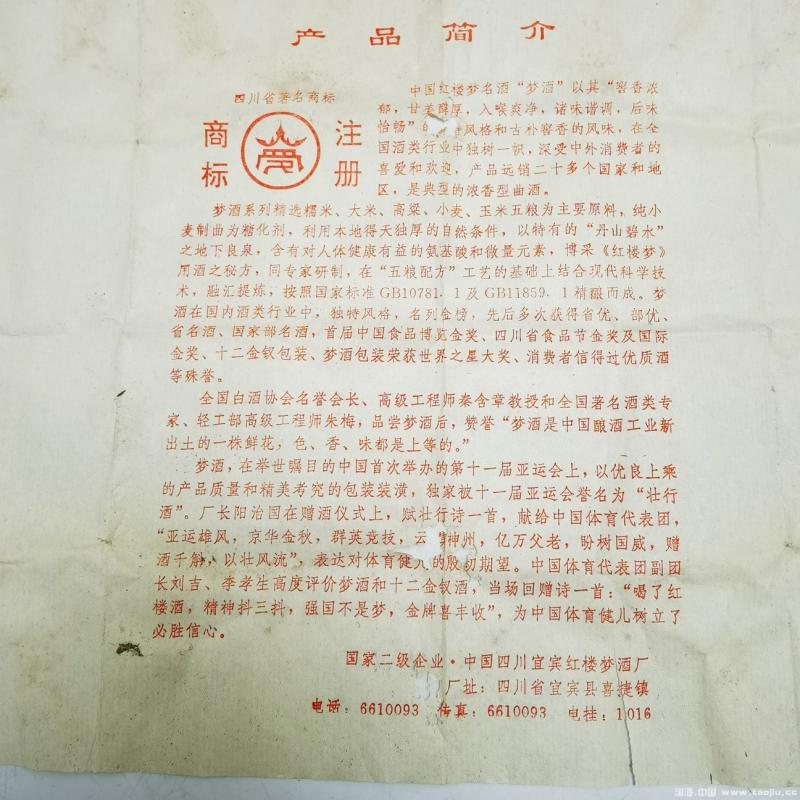 产品简介
四川省著名商标
商标
注册
中国红楼梦名酒“梦酒”以其“窖香浓
郁，甘美醇厚，入喉爽净，诸味谐调，后味
怡畅”的 风格和古朴窖香的风味，在全
国酒类行业中独树一帜，深受中外消费者的
喜爱和欢迎，产品远销二十多个国家和地
区，是典型的浓香型曲酒。
梦酒系列精选糯米、大米、高粱、小麦、玉米五粮为主要原料，纯小
麦制曲为糖化剂，利用本地得天独厚的自然条件，以特有的“丹山碧水”
之地下良泉，含有对人体健康有益的氨基酸和微量元素，博采《红楼梦》
用酒之秘方，同专家研制，在“五粮配方”工艺的基础上结合现代科学技
术，融汇提炼，按照国家标准GB10781.1及GB11859.1精酿而成。梦
酒在国内酒类行业中，独特风格，名列金榜，先后多次获得省优、部优、
省名酒、国家部名酒，首届中国食品博览金奖、四川省食品节金奖及国际
金奖、十二金钗包装、梦酒包装荣获世界之星大奖、消费者信得过优质酒
等殊誉。
全国白酒协会名誉会长、高级工程师秦含章教授和全国著名酒类专
家、轻工部高级工程师朱梅，品尝梦酒后，赞誉“梦酒是中国酿酒工业新
出土的一株鲜花，色、香、味都是上等的。”
梦酒，在举世瞩目的中国首次举办的第十一届亚运会上，以优良上乘
的产品质量和精美考究的包装装潢，独家被十一届亚运会誉名为“壮行
酒”。厂长阳治国在赠酒仪式上，赋壮行诗一首，献给中国体育代表团，
“亚运雄风，京华金秋，群英竞技，云 神州，亿万父老，盼树国威，赠
酒千斛，以壮风流”，表达对体育健儿的殷切期望。中国体育代表团副团
长刘吉、李孝生高度评价梦酒和十二金钗酒，当场回赠诗一首：“喝了红
楼酒，精神抖三抖，强国不是梦，金牌喜丰收”，为中国体育健儿树立了
必胜信心。
国家二级企业·中国四川宜宾红楼梦酒厂
厂址：四川省宜宾县喜捷镇
电话：6610093 传真：6610093 电挂：1016
淘酒.中国 www.taojiu.cc